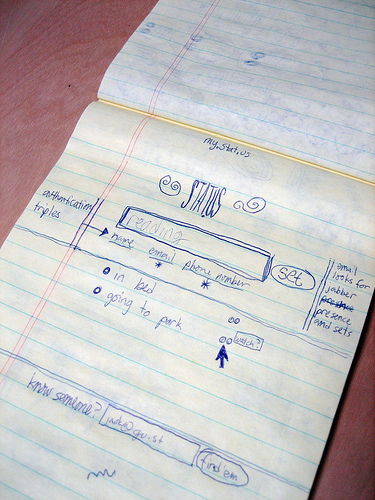 my.stat.us
STATUS
reading
authentication
triples
name email phone number
set
in bed
going to park
watch?
email
looks for
jabber
presence
presence
and sets
know someone?
find 'em